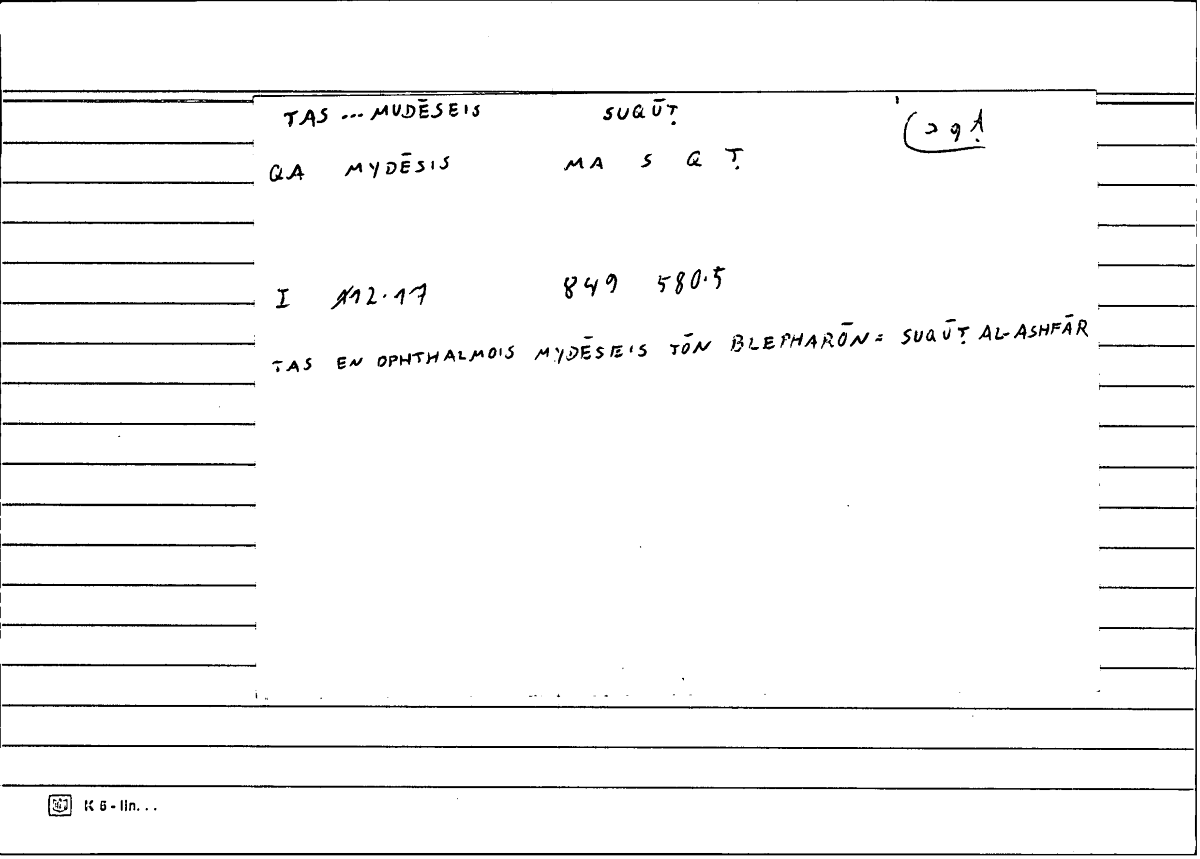 TAS ... MUDĒSEIS SUQŪṬ
QA MYDĒSIS MA S Q Ṭ
I 112.17 849 580.5
TAS EN OPHTHALMOIS MYDĒSEIS TŌN BLEPHARŌN = SUQŪṬ AL-ASHFĀR
K 6 - lin...